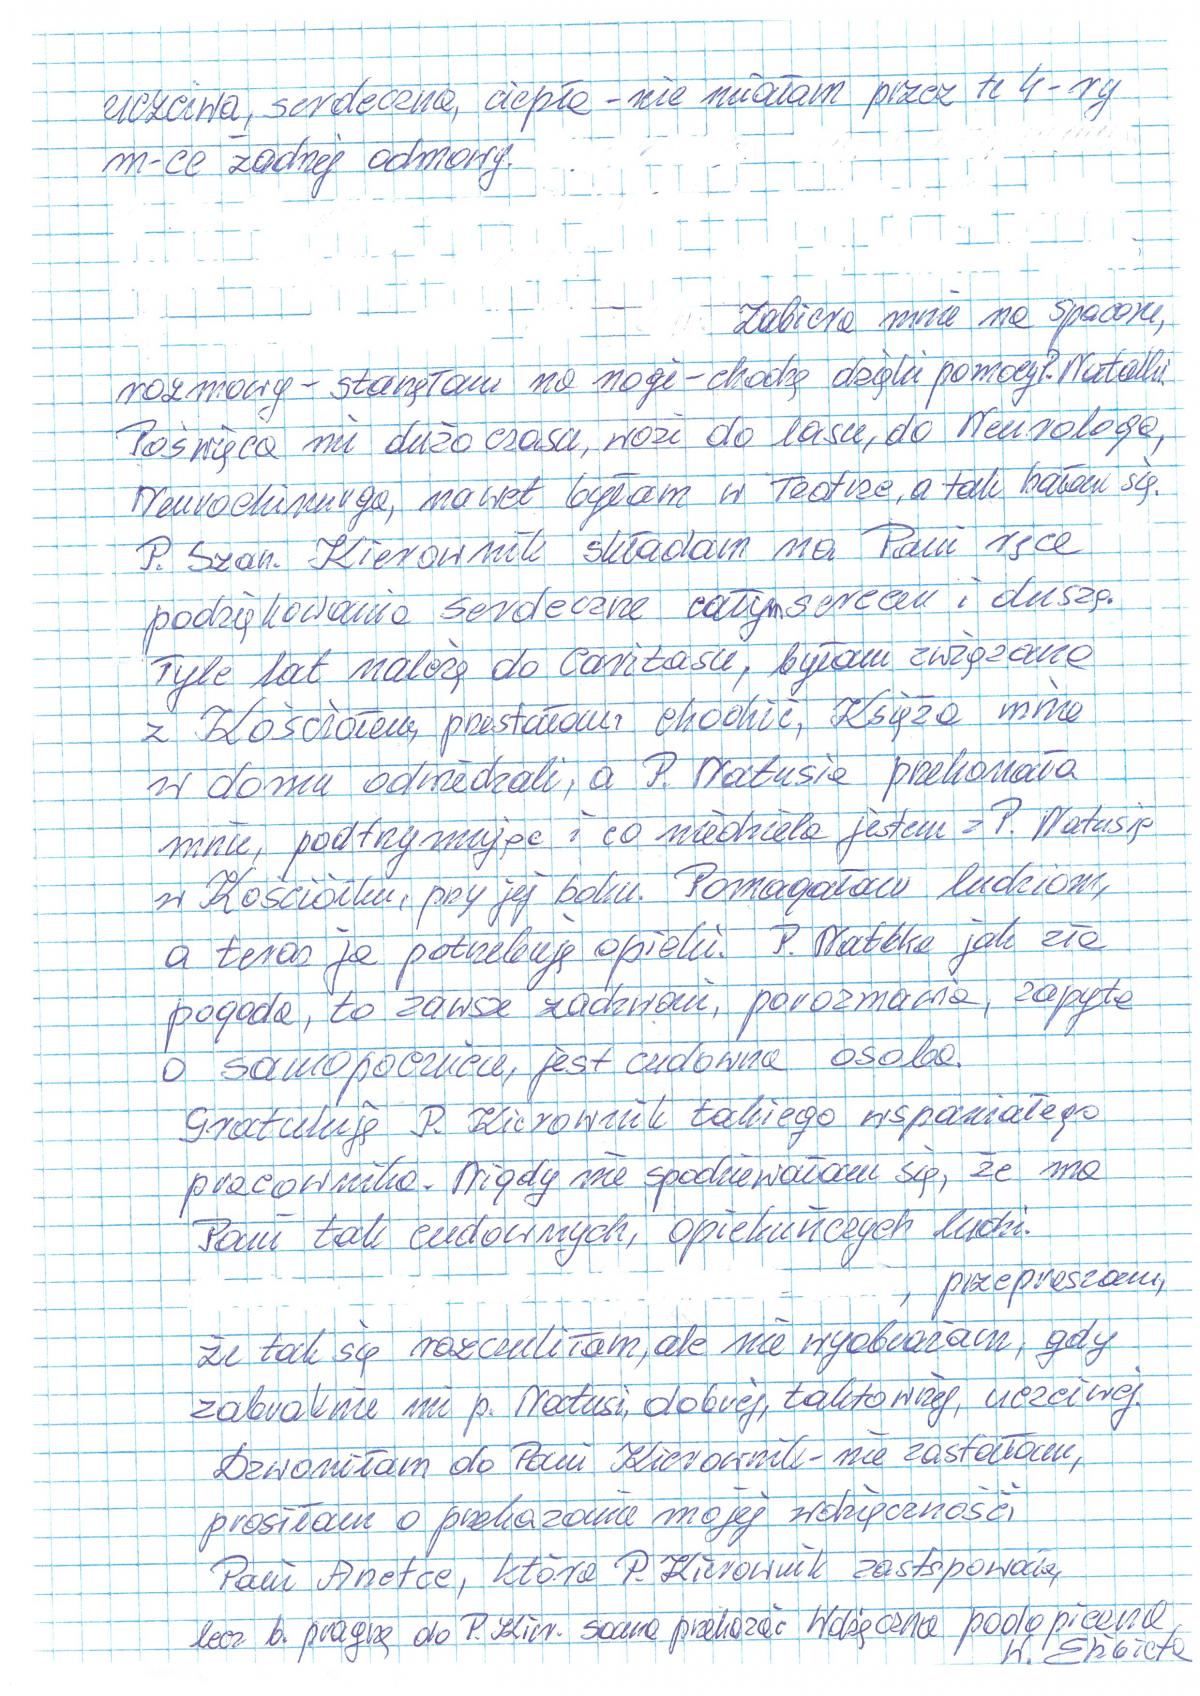 uczciwa, serdeczna, ciepła - nie miałam przez te 4-ry
m-ce żadnej odmowy.
Zabiera mnie na spacery,
rozmowy - stanęłam na nogi - chodzę dzięki pomocy P. Natalki.
Poświęca mi dużo czasu, wozi do lasu, do Neurologa,
Neurochirurga, nawet byłam w Teatrze, a tak bałam się.
P. Szan. Kierownik składam na Pani ręce
podziękowania serdeczne całym sercem i duszą.
Tyle lat należę do Caritasu, byłam związana
z Kościołem, przestałam chodzić, Księża mnie
w domu odwiedzali, a P. Natusia przekonała
mnie, podtrzymując i co niedziela jestem z P. Natusią
w Kościółku, przy jej boku. Pomagałam ludziom,
a teraz ja potrzebuję opieki. P. Natalka jak zła
pogoda, to zawsze zadzwoni, porozmawia, zapyta
o samopoczucie, jest cudowna osoba.
Gratuluję P. Kierownik takiego wspaniałego
pracownika. Nigdy nie spodziewałam się, że ma
Pani tak cudownych, opiekuńczych ludzi.
, przepraszam,
że tak się rozczuliłam, ale nie wyobrażam, gdy
zabraknie mi p. Natusi, dobrej, taktownej, uczciwej.
Dzwoniłam do Pani Kierownik - nie zastałam,
prosiłam o przekazanie mojej wdzięczności
Pani Anetce, która P. Kierownik zastępowała,
lecz b. pragnę do P. Kier. sama przekazać Wdzięczna podopieczna
W. Elżbieta